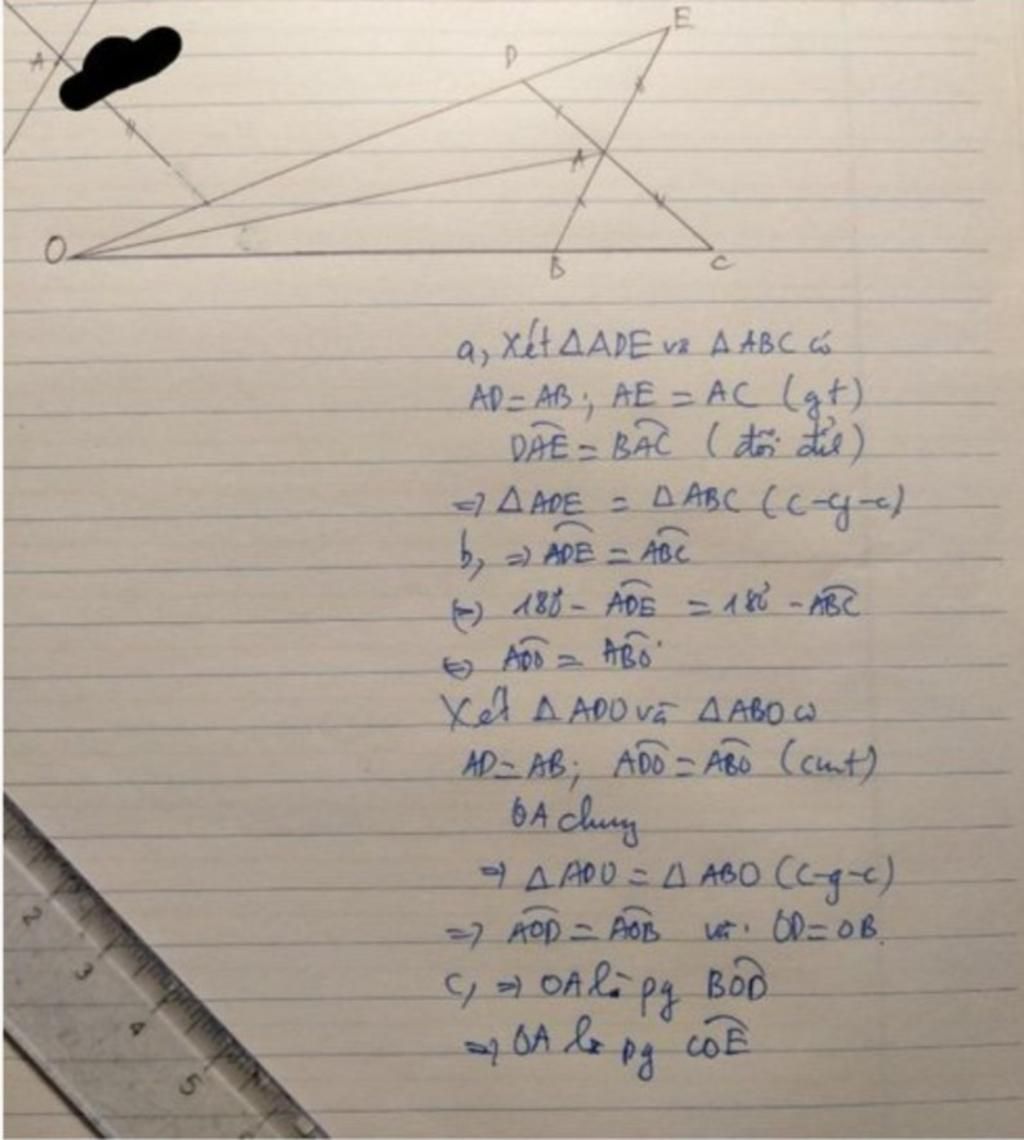 A
D
E
A
O
B
C
a, Xét ΔADE và ΔABC có
AD = AB ; AE = AC (gt)
\widehat{DAE} = \widehat{BAC} (đối đỉ)
=> ΔADE = ΔABC (c-g-c)
b, => \widehat{ADE} = \widehat{ABC}
(=) 180° - \widehat{ADE} = 180° - \widehat{ABC}
<=> \widehat{ADO} = \widehat{ABO}
Xét ΔADO và ΔABO có
AD = AB; \widehat{ADO} = \widehat{ABO} (cmt)
OA chung
=> ΔADO = ΔABO (c-g-c)
=> \widehat{AOD} = \widehat{AOB} và OD = OB.
c, => OA là pg \widehat{BOD}
=> OA là pg \widehat{COE}
2
3
4
5
6